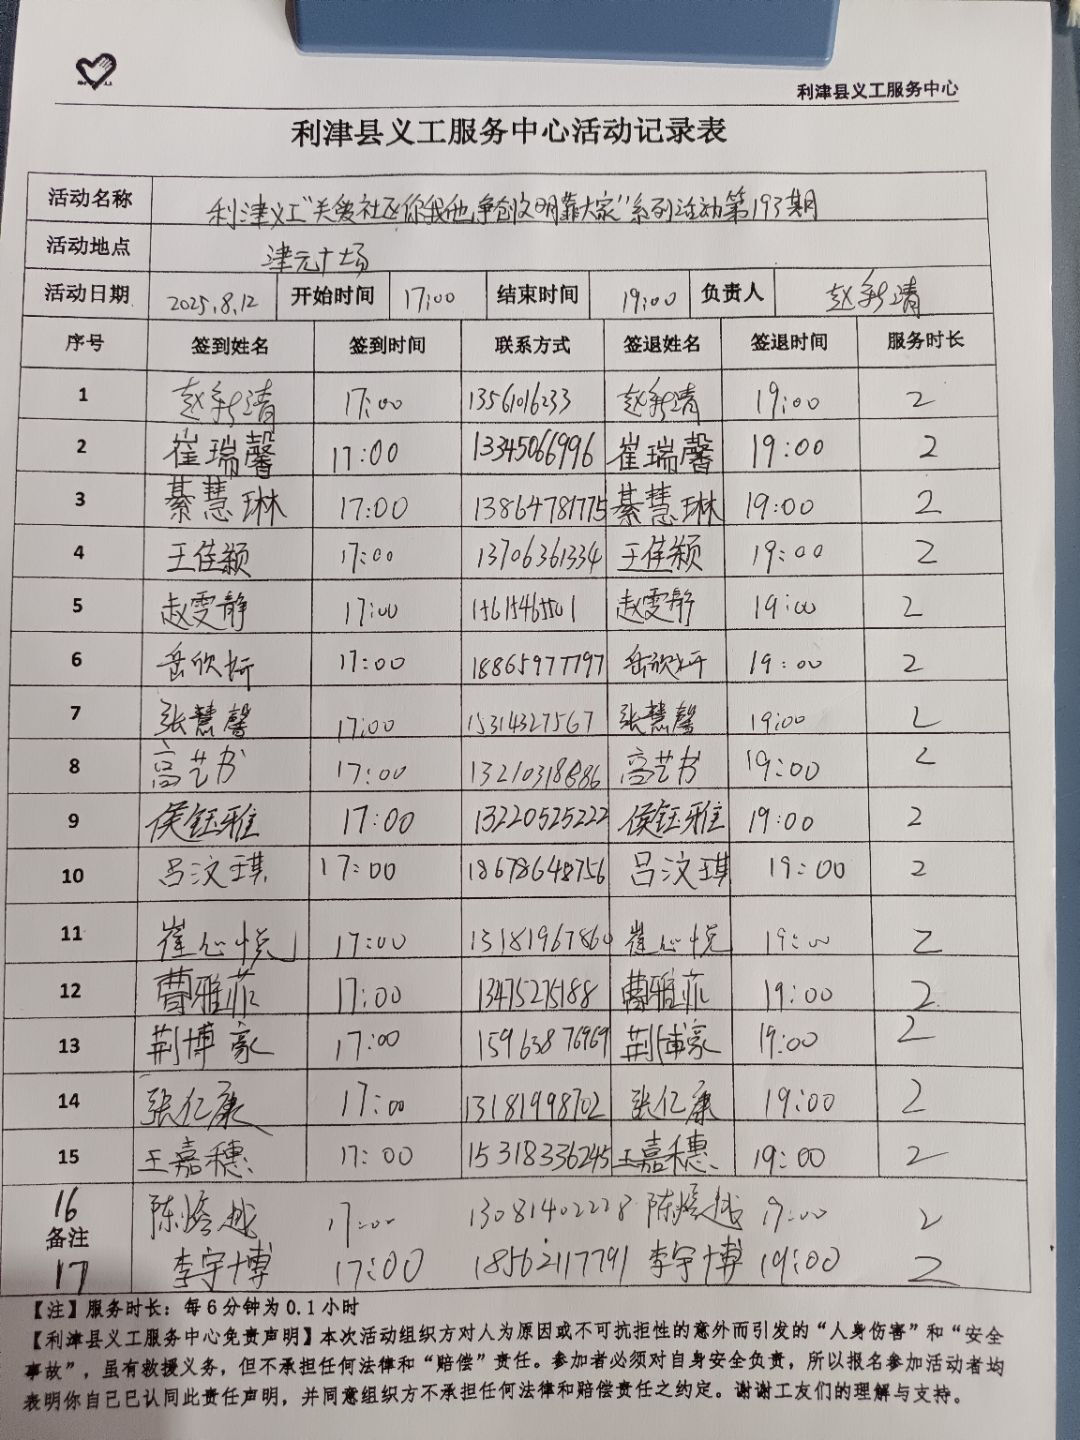 利津县义工服务中心
利津县义工服务中心活动记录表
活动名称 利津义工"关爱社区你我他,争创文明靠大家"系列活动第193期
活动地点 津元广场
活动日期 2025.8.12 开始时间 17:00 结束时间 19:00 负责人 赵新清
序号 签到姓名 签到时间 联系方式 签退姓名 签退时间 服务时长
1 赵新清 17:00 13561016233 赵新清 19:00 2
2 崔瑞馨 17:00 13345066996 崔瑞馨 19:00 2
3 綦慧琳 17:00 13864781775 綦慧琳 19:00 2
4 王佳颖 17:00 13706361334 王佳颖 19:00 2
5 赵雯静 17:00 15615465501 赵雯静 19:00 2
6 岳欣妍 17:00 18865977797 岳欣妍 19:00 2
7 张慧馨 17:00 15314327567 张慧馨 19:00 2
8 高艺书 17:00 13210318886 高艺书 19:00 2
9 侯钰雅 17:00 13220525222 侯钰雅 19:00 2
10 吕汶琪 17:00 18678648756 吕汶琪 19:00 2
11 崔心悦 17:00 13181967860 崔心悦 19:00 2
12 曹雅菲 17:00 13475275188 曹雅菲 19:00 2
13 荆博豪 17:00 15963876969 荆博豪 19:00 2
14 张仁康 17:00 13181998702 张仁康 19:00 2
15 王嘉穗 17:00 15318336245 王嘉穗 19:00 2
16 17:00 13081402228 19:00 2
备注
17 李宇博 17:00 18562117791 李宇博 19:00 2
【注】服务时长：每6分钟为0.1小时
【利津县义工服务中心免责声明】本次活动组织方对人为原因或不可抗拒性的意外而引发的“人身伤害”和“安全
事故”，虽有救援义务，但不承担任何法律和“赔偿”责任。参加者必须对自身安全负责，所以报名参加活动者均
表明你自己已认同此责任声明，并同意组织方不承担任何法律和赔偿责任之约定。谢谢工友们的理解与支持。